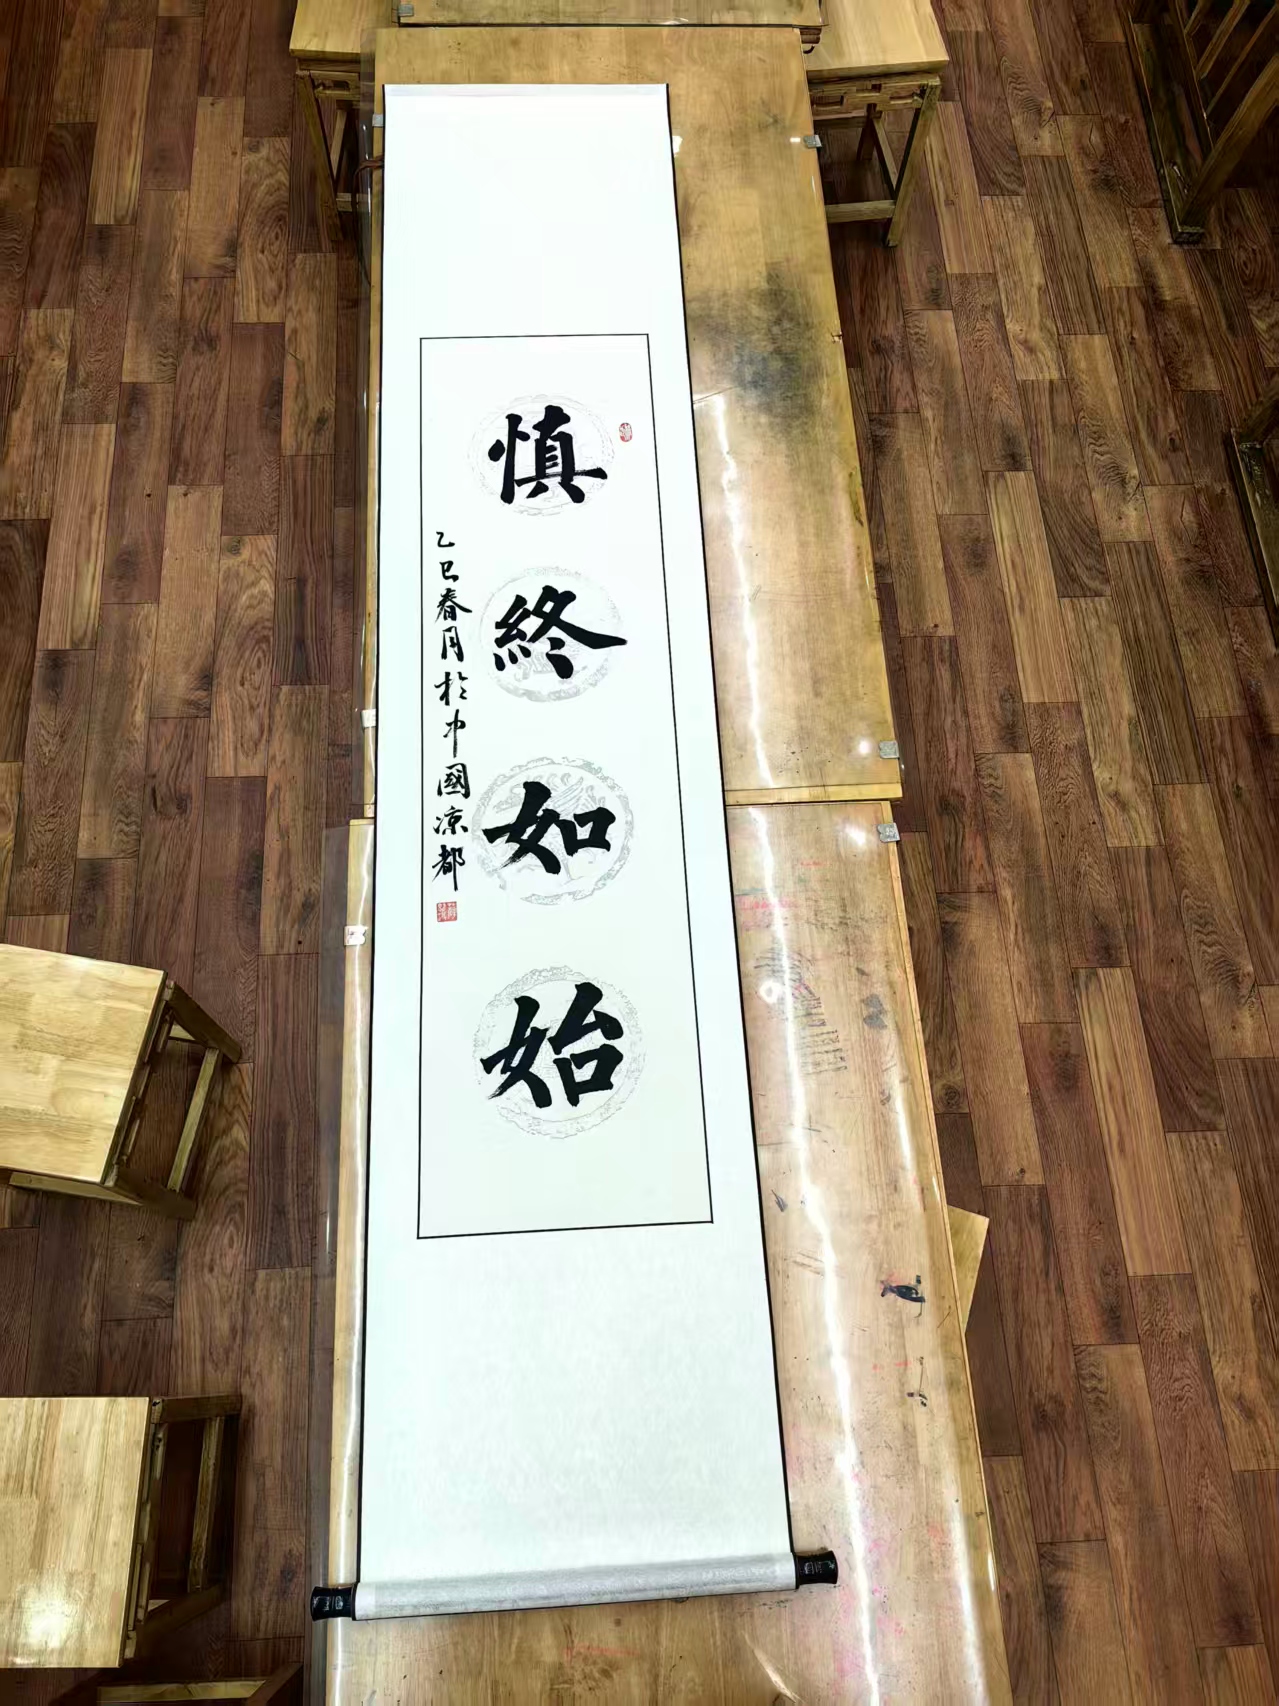 慎終如始
乙巳春月於中國凉都